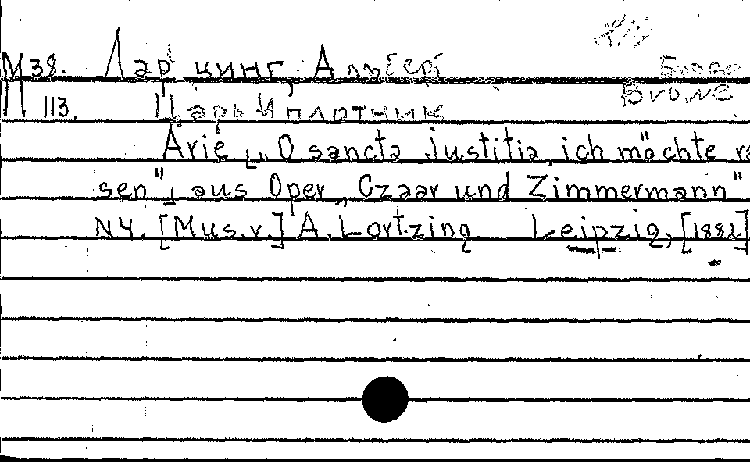 М 38. Лорцинг, Альберт
П 113. Царь и плотник
Arie „O sancta justitia, ich möchte ra
sen" aus Oper „Czaar und Zimmermann"
N4. [Mus.v.] A. Lortzing. Leipzig, [1881]